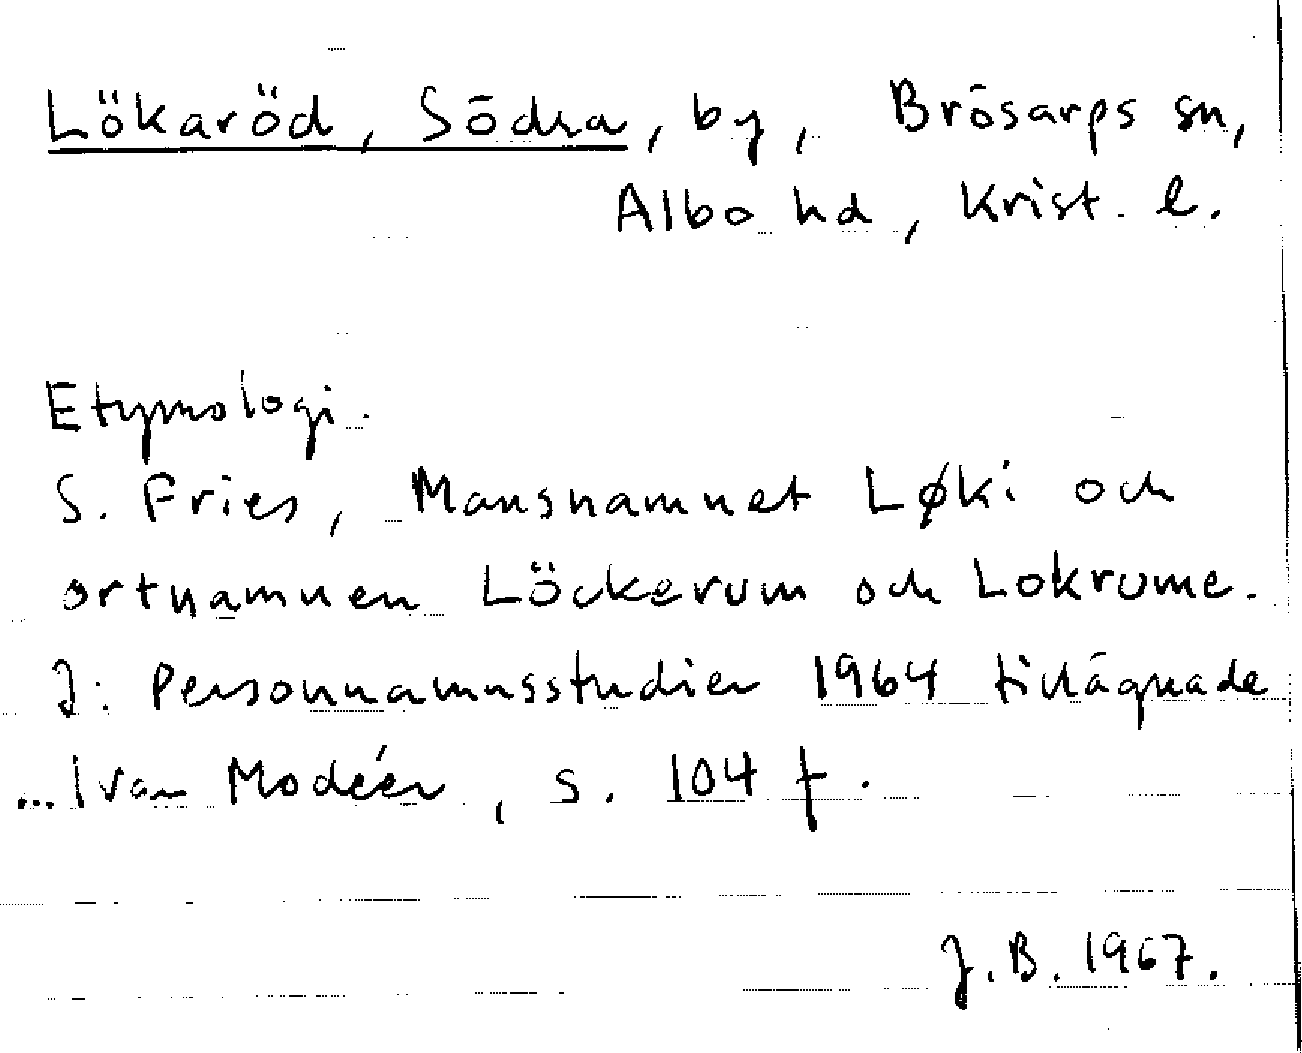 Lökaröd, Södra, by, Brösarps sn,
Albo hd, Krist. l.
Etymologi.
S. Fries, Mansnamnet Løki och
ortnamnen Löckerum och Lokrume.
I: Personnamnsstudier 1964 tillägnade
... Ivar Modéer, s. 104 f.
J. B. 1967.